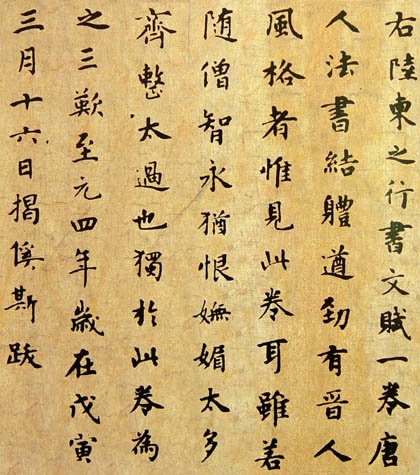 右陸柬之行書文賦一卷唐
人法書結體遒勁有晉人
風格者惟見此卷耳雖若
随僧智永猶恨嫵媚太多
齊整太過也獨於此卷為
之三歎至元四年歲在戊寅
三月十六日揭傒斯跋